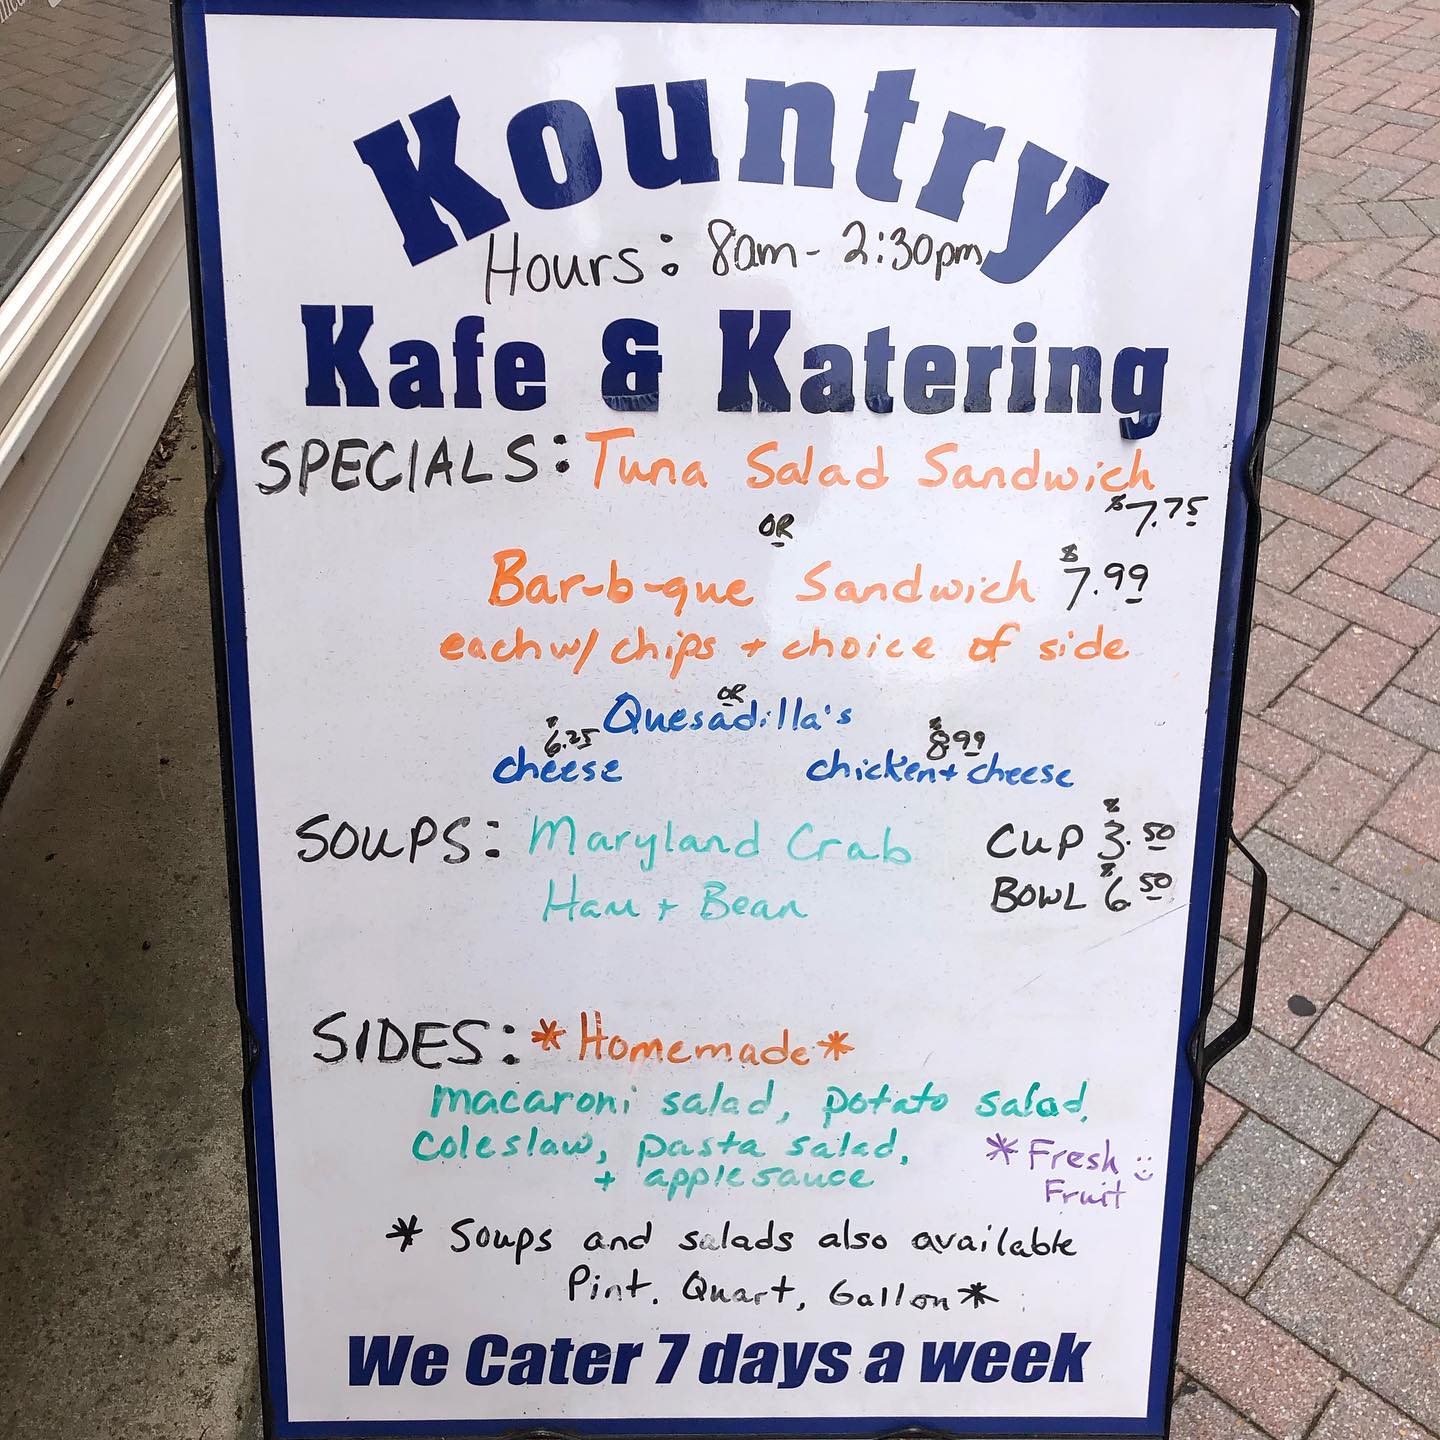 Kountry
Hours: 8am - 2:30pm
Kafe & Katering
SPECIALS: Tuna Salad Sandwich
$7.75
OR
Bar-b-que Sandwich $7.99
each w/ chips + choice of side
OR
Quesadilla's
$6.25 $8.99
cheese chicken + cheese
SOUPS: Maryland Crab CUP $3.50
Ham + Bean BOWL $6.50
SIDES: *Homemade*
macaroni salad, potato salad,
coleslaw, pasta salad, *Fresh
+ applesauce Fruit
* Soups and salads also available
Pint, Quart, Gallon *
We Cater 7 days a week